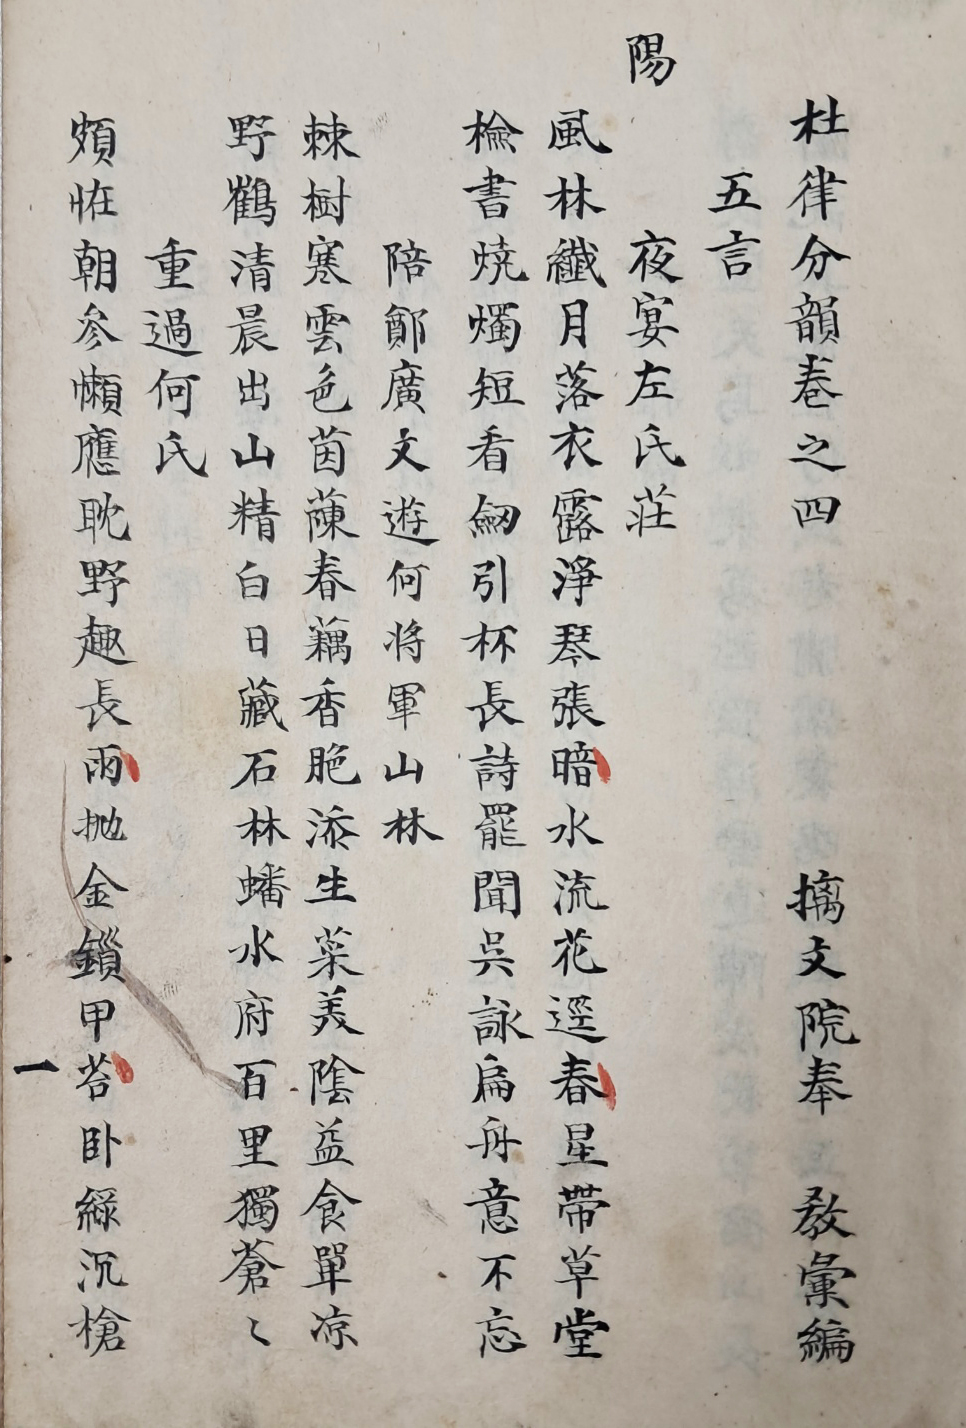 杜律分韻卷之四　摛文院奉　教彙編
五言
陽
夜宴左氏莊
風林纖月落衣露淨琴張暗水流花逕春星帶草堂
檢書燒燭短看劒引杯長詩罷聞吳詠扁舟意不忘
陪鄭廣文遊何将軍山林
棘樹寒雲色茵蔯春藕香脆添生菜美陰益食單凉
野鶴清晨出山精白日藏石林蟠水府百里獨蒼〻
重過何氏
頗恠朝參懶應耽野趣長雨抛金鎖甲苔卧綠沉槍
一